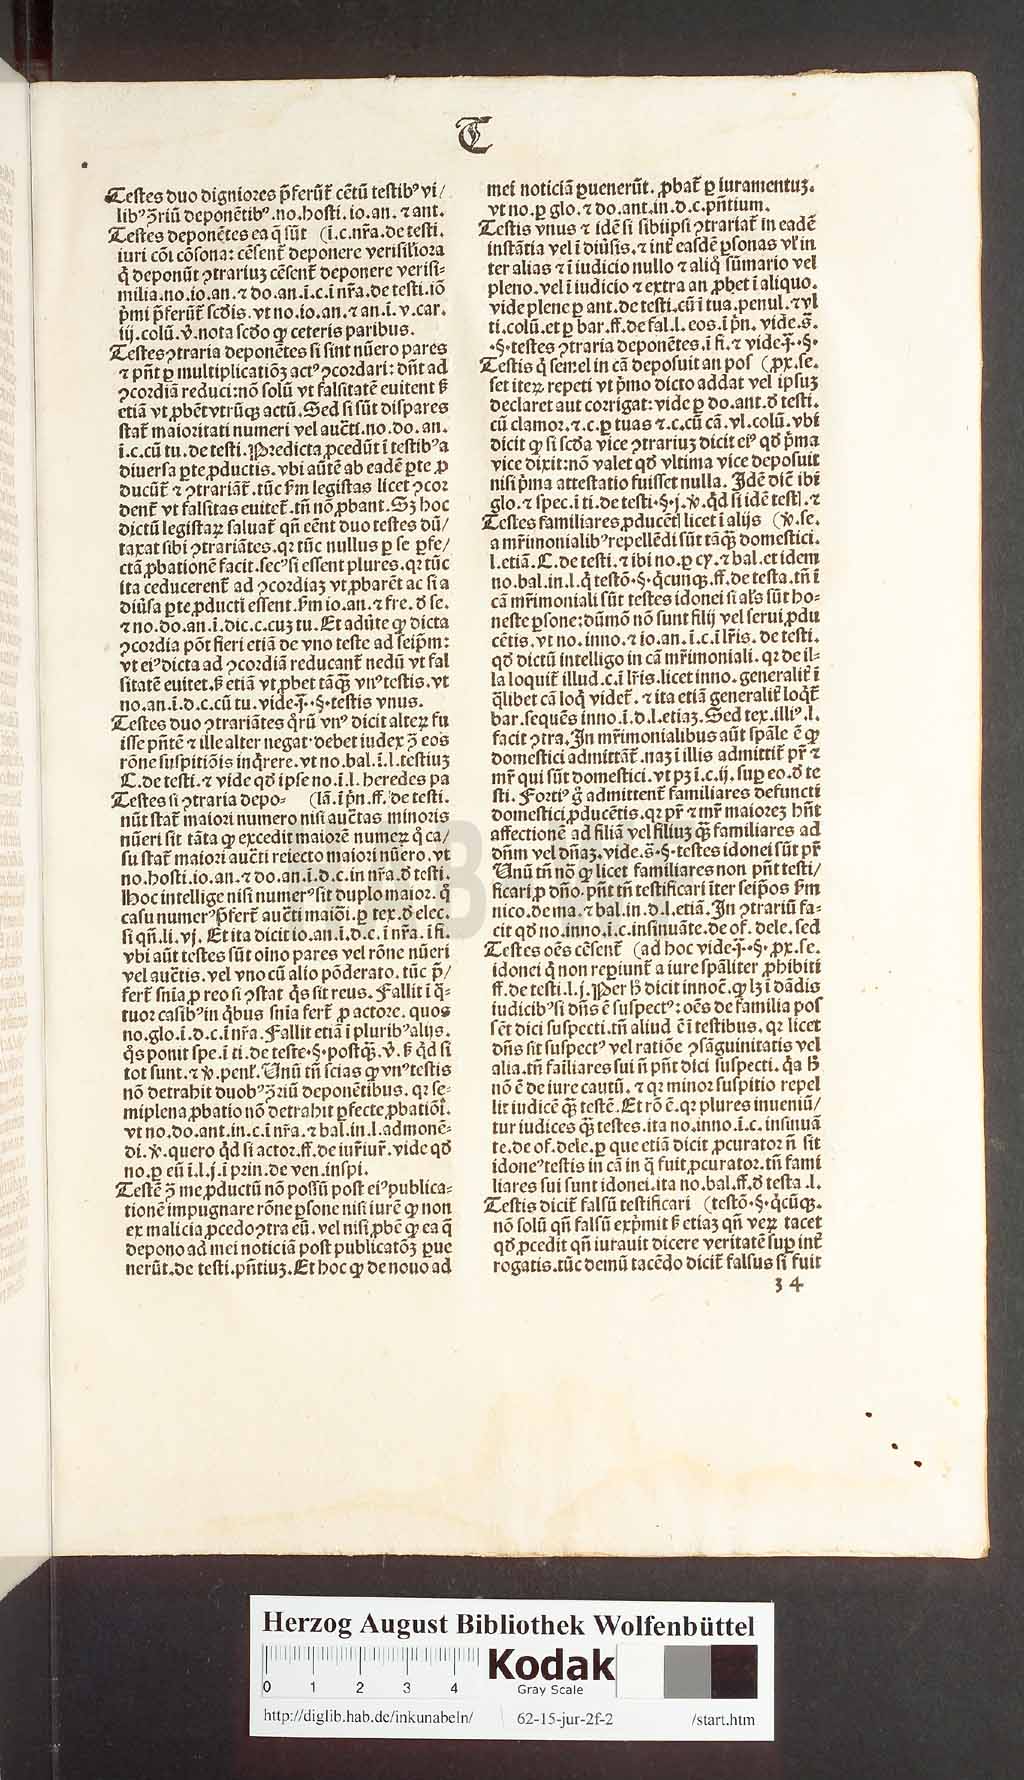 T
Testes duo digniores p̄ferūt᷑ cētū testibꝰ vi/
libꝰ ꝯ̄riū deponētibꝰ.no.hosti.io.an.⁊ ant.
Testes deponētes ea q̄ sūt (ī.c.nr̄a.de testi.
iuri cōi cōsona: cēsent᷑ deponere verisiliora
q̇ deponūt ꝯtrariuꝫ cēsent᷑ deponere verisi-
milia.no.io.an.⁊ do.an.ī.c.ī nr̄a.de testi.iō
p̄mi p̄ferūt᷑ scďis.vt no.io.an.⁊ an.ī.v.car.
iij.colū.v̇.nota scďo ꝙ ceteris paribus.
Testes ꝯtraria deponētes si sint nūero pares
⁊ pn̄t ꝑ multiplicatiōꝫ actꝰ ꝯcordari: dn̄t ad
ꝯcordiā reduci: nō solū vt falsitatē euitent ß
etiā vt ꝓbēt vtrūqꝫ actū. Sed si sūt dispares
stat᷑ maioritati numeri vel aucti.no.do.an.
ī.c.cū tu.de testi. Predicta ꝓcedūt ī testibꝰ a
diuersa ꝑte ꝓductis.vbi aūtē ab eadē ꝑte ꝓ
ducūt᷑ ⁊ ꝯtrariāt᷑.tūc ẜm legistas licet ꝯcor
dent᷑ vt falsitas euitet᷑.tn̄ nō ꝓbant. Sꝫ hoc
dictū legistaꝝ saluat᷑ qn̄ cēnt duo testes dū/
taxat sibi ꝯtrariātes.qꝛ tūc nullus ꝑ se ꝑfe/
ctā ꝓbationē facit.secꝰ si essent plures.qꝛ tūc
ita ceducerent᷑ ad ꝯcordiaꝫ vt ꝓbarēt ac si a
diūsa ꝑte ꝓducti essent.ẜm io.an.⁊ fre.ď se.
⁊ no.do.an.ī.dic.c.cuꝫ tu. Et adūte ꝙ dicta
ꝯcordia pōt fieri etiā de vno teste ad seip̄m:
vt eiꝰ dicta ad ꝯcordiā reducant᷑ nedū vt fal
sitatē euitet.ß etiā vt ꝓbet tāqꝫ̄ vnꝰ testis.vt
no.an.ī.d.c.cū tu.vide.j̄.§.testis vnus.
Testes duo ꝯtrariātes q̇rū vnꝰ dicit alteꝝ fu
isse pn̄tē ⁊ ille alter negat.debet iudex ꝯ̄ eos
rōne suspitiōis inq̇rere.vt no.bal.ī.l.testiuꝫ
C.de testi.⁊ vide qď ipse no.ī.l. heredes pa
Testes si ꝯtraria depo- (lā.ī p̄n.ff.de testi.
nūt stat᷑ maiori numero nisi auctas minoris
nūeri sit tāta ꝙ excedit maiorē numeꝝ q̇ ca/
su stat᷑ maiori aucti reiecto maiori nūero.vt
no.hosti.io.an.⁊ do.an.ī.d.c.in nr̄a.ď testi.
Hoc intellige nisi numerꝰ sit duplo maior.q̇
casu numerꝰ p̄fert᷑ aucti maiōi.ꝑ tex.ď elec.
si qn̄.li.vj. Et ita dicit io.an.ī.d.c.ī nr̄a.ī fi.
vbi aūt testes sūt oīno pares vel rōne nūeri
vel auctis.vel vno cū alio pōderato.tūc p̄/
fert᷑ snīa ꝓ reo si ꝯstat q̇s sit reus. Fallit ī q̄-
tuor casibꝰ in q̇bus snīa fert᷑ ꝓ actore. quos
no.glo.ī.d.c.ī nr̄a. Fallit etiā ī pluribꝰ alijs.
q̇s ponit spe.ī ti.de teste.§.postqꝫ̄.v̇.ß q̇d si
tot sunt.⁊ v̇.penl᷑. Unū tn̄ scias ꝙ vnꝰ testis
nō detrahit duobꝰ ꝯ̄riū deponētibus. qꝛ se-
miplena ꝓbatio nō detrahit ꝑfecte ꝓbatiōi.
vt no.do.ant.in.c.ī nr̄a.⁊ bal.in.l.admonē-
di.v̇.quero q̇d si actor.ff.de iur̄iur᷑.vide qď
no.ꝑ eū ī.l.j.ī prin.de ven.inspi.
Testē ꝯ̄ me ꝓductū nō possū post eiꝰ publica-
tionē impugnare rōne ꝑsone nisi iurē ꝙ non
ex malicia ꝓcedo ꝯtra eū.vel nisi ꝓbē ꝙ ea q̄
depono ad mei noticiā post publicatōꝫ ꝑue
nerūt.de testi.pn̄tiuꝫ. Et hoc ꝙ de nouo ad
mei noticiā ꝑuenerūt. ꝓbat᷑ ꝑ iuramentuꝫ.
vt no.ꝑ glo.⁊ do.ant.in.d.c.pn̄tium.
Testis vnus ⁊ idē si sibiipsi ꝯtrariat᷑ in eadē
instātia vel ī diūsis.⁊ int᷑ easdē ꝑsonas vl᷑ in
ter alias ⁊ ī iudicio nullo ⁊ aliq̇ sūmario vel
pleno.vel ī iudicio ⁊ extra an ꝓbet ī aliquo.
vide plene ꝑ ant.de testi.cū ī tua.penul.⁊ vl
ti.colū.et ꝑ bar.ff.de fal.l.eos.ī p̄n. vide.s̄.
.§.testes ꝯtraria deponētes.ī fi.⁊ vide.j̄.§.
Testis q̇ semel in cā deposuit an pos (ꝓx.se.
set iteꝝ repeti vt p̄mo dicto addat vel ipsuꝫ
declaret aut corrigat: vide ꝑ do.ant.ď testi.
cū clamor.⁊.c.ꝑ tuas ⁊.c.cū cā.vl.colū.vbi
dicit ꝙ si scďa vice ꝯtrariuꝫ dicit eiꝰ qď p̄ma
vice dixit: nō valet qď vltima vice deposuit
nisi p̄ma attestatio fuisset nulla. Idē dic̄ ibi
glo.⁊ spec.ī ti.de testi.§.j.v̇.q̇d si idē testꝭ.⁊
Testes familiares ꝓducētꝭ licet ī alijs (v̇.se.
a mr̄imonialibꝰ repellēdi sūt tāqꝫ̄ domestici.
l.etiā.C.de testi.⁊ ibi no.ꝑ cy.⁊ bal.et idem
no.bal.in.l.q̇ testō.§.q̇cunqꝫ.ff.de testa.tn̄ ī
cā mr̄imoniali sūt testes idonei si als̄ sūt ho-
neste ꝑsone: dūmō nō sunt filij vel serui ꝓdu
cētis.vt no.inno.⁊ io.an.ī.c.ī lr̄is. de testi.
qď dictū intelligo in cā mr̄imoniali. qꝛ de il-
la loquit᷑ illud.c.ī lr̄is.licet inno. generalit᷑ ī
q̇libet cā loq̇ videt᷑. ⁊ ita etiā generalit᷑ loq̇t᷑
bar.sequēs inno.ī.d.l.etiaꝫ. Sed tex.illiꝰ.l.
facit ꝯtra. In mr̄imonialibus aūt spāle ē ꝙ
domestici admittāt᷑.naꝫ ī illis admittit᷑ pr̄ ⁊
mr̄ qui sūt domestici.vt pꝫ ī.c.ij. suꝑ eo.ď te
sti. Fortiꝰ g̊ admittent᷑ familiares defuncti
domestici ꝓducētis.qꝛ pr̄ ⁊ mr̄ maiorez hn̄t
affectionē ad filiā vel filiuꝫ qꝫ̄ familiares ad
dn̄m vel dn̄aꝫ.vide.s̄.§.testes idonei sūt pr̄
Unū tn̄ nō ꝙ licet familiares non pn̄t testi/
ficari ꝓ dn̄o.pn̄t tn̄ testificari īter seip̄os ẜm
nico.de ma.⁊ bal.in.d.l.etiā. In ꝯtrariū fa-
cit qď no.inno.ī.c.insinuāte.de of. dele. sed
Testes oēs cēsent᷑ (ad hoc vide.j̄.§.ꝓx.se.
idonei q̇ non reꝑiunt᷑ a iure spāliter ꝓhibiti
ff.de testi.l.j. Per ħ dicit innoc̄.ꝙ lꝫ ī dādis
iudicibꝰ si dn̄s ē suspectꝰ: oēs de familia pos
sēt dici suspecti.tn̄ aliud ē ī testibus. qꝛ licet
dn̄s sit suspectꝰ vel ratiōe ꝯsāguinitatis vel
alia.tn̄ failiares sui n̄ pn̄t dici suspecti. q̇a ħ
nō ē de iure cautū. ⁊ qꝛ minor suspitio repel
lit iudicē qꝫ̄ testē. Et rō ē.qꝛ plures inueniū/
tur iudices qꝫ̄ testes.ita no.inno.ī.c. insinuā
te.de of.dele.ꝑ que etiā dicit ꝓcurator n̄ sit
idoneꝰ testis in cā in q̄ fuit ꝓcurator.tn̄ fami
liares sui sunt idonei.ita no.bal.ff.ď testa.l.
Testis dicit᷑ falsū testificari (testō.§.q̇cūqꝫ.
nō solū qn̄ falsū exp̄mit ß etiaꝫ qn̄ veꝝ tacet
qď ꝓcedit qn̄ iurauit dicere veritatē suꝑ int᷑
rogatis.tūc demū tacēdo dicit᷑ falsus si fuit
34
HAB
Herzog August Bibliothek Wolfenbüttel
0 1 2 3 4
Kodak
Gray Scale
http://diglib.hab.de/inkunabeln/ 62-15-jur-2f-2 /start.htm